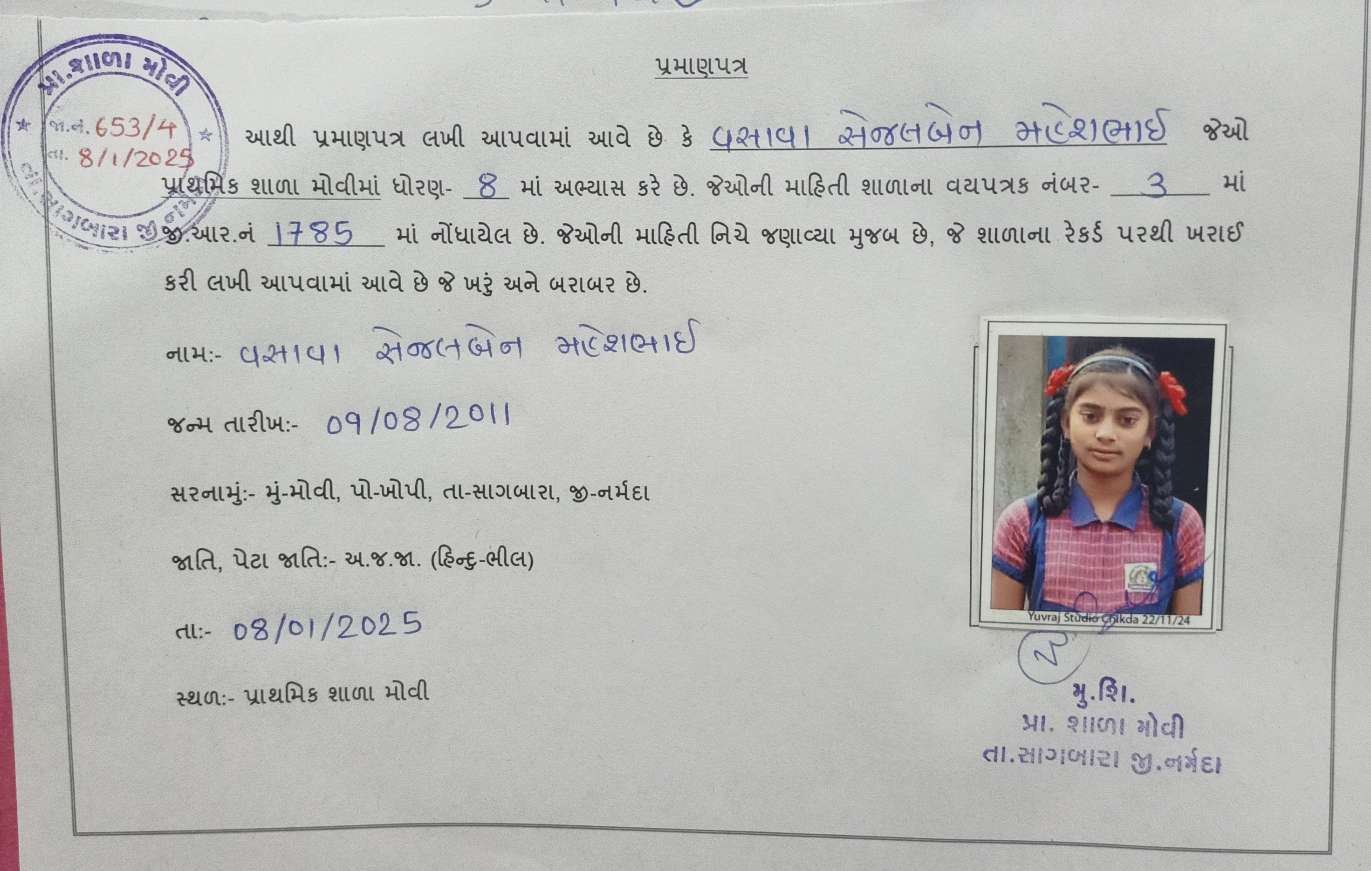 પ્રમાણપત્ર
પ્રા.શાળા મોવી
જા.નં. 653/4
તા. 8/1/2025
તા.સાગબારા જી.નર્મદા
આથી પ્રમાણપત્ર લખી આપવામાં આવે છે કે વસાવા સેજલબેન મહેશભાઈ જેઓ
પ્રાથમિક શાળા મોવીમાં ધોરણ- 8 માં અભ્યાસ કરે છે. જેઓની માહિતી શાળાના વયપત્રક નંબર- 3 માં
જી.આર.નં 1785 માં નોંધાયેલ છે. જેઓની માહિતી નિચે જણાવ્યા મુજબ છે, જે શાળાના રેકર્ડ પરથી ખરાઈ
કરી લખી આપવામાં આવે છે જે ખરું અને બરાબર છે.
નામ:- વસાવા સેજલબેન મહેશભાઈ
જન્મ તારીખ:- 09/08/2011
સરનામું:- મું-મોવી, પો-ખોપી, તા-સાગબારા, જી-નર્મદા
જાતિ, પેટા જાતિ:- અ.જ.જા. (હિન્દુ-ભીલ)
તા:- 08/01/2025
સ્થળ:- પ્રાથમિક શાળા મોવી
Yuvraj Studio Chikda 22/11/24
મુ.શિ.
પ્રા. શાળા મોવી
તા.સાગબારા જી.નર્મદા